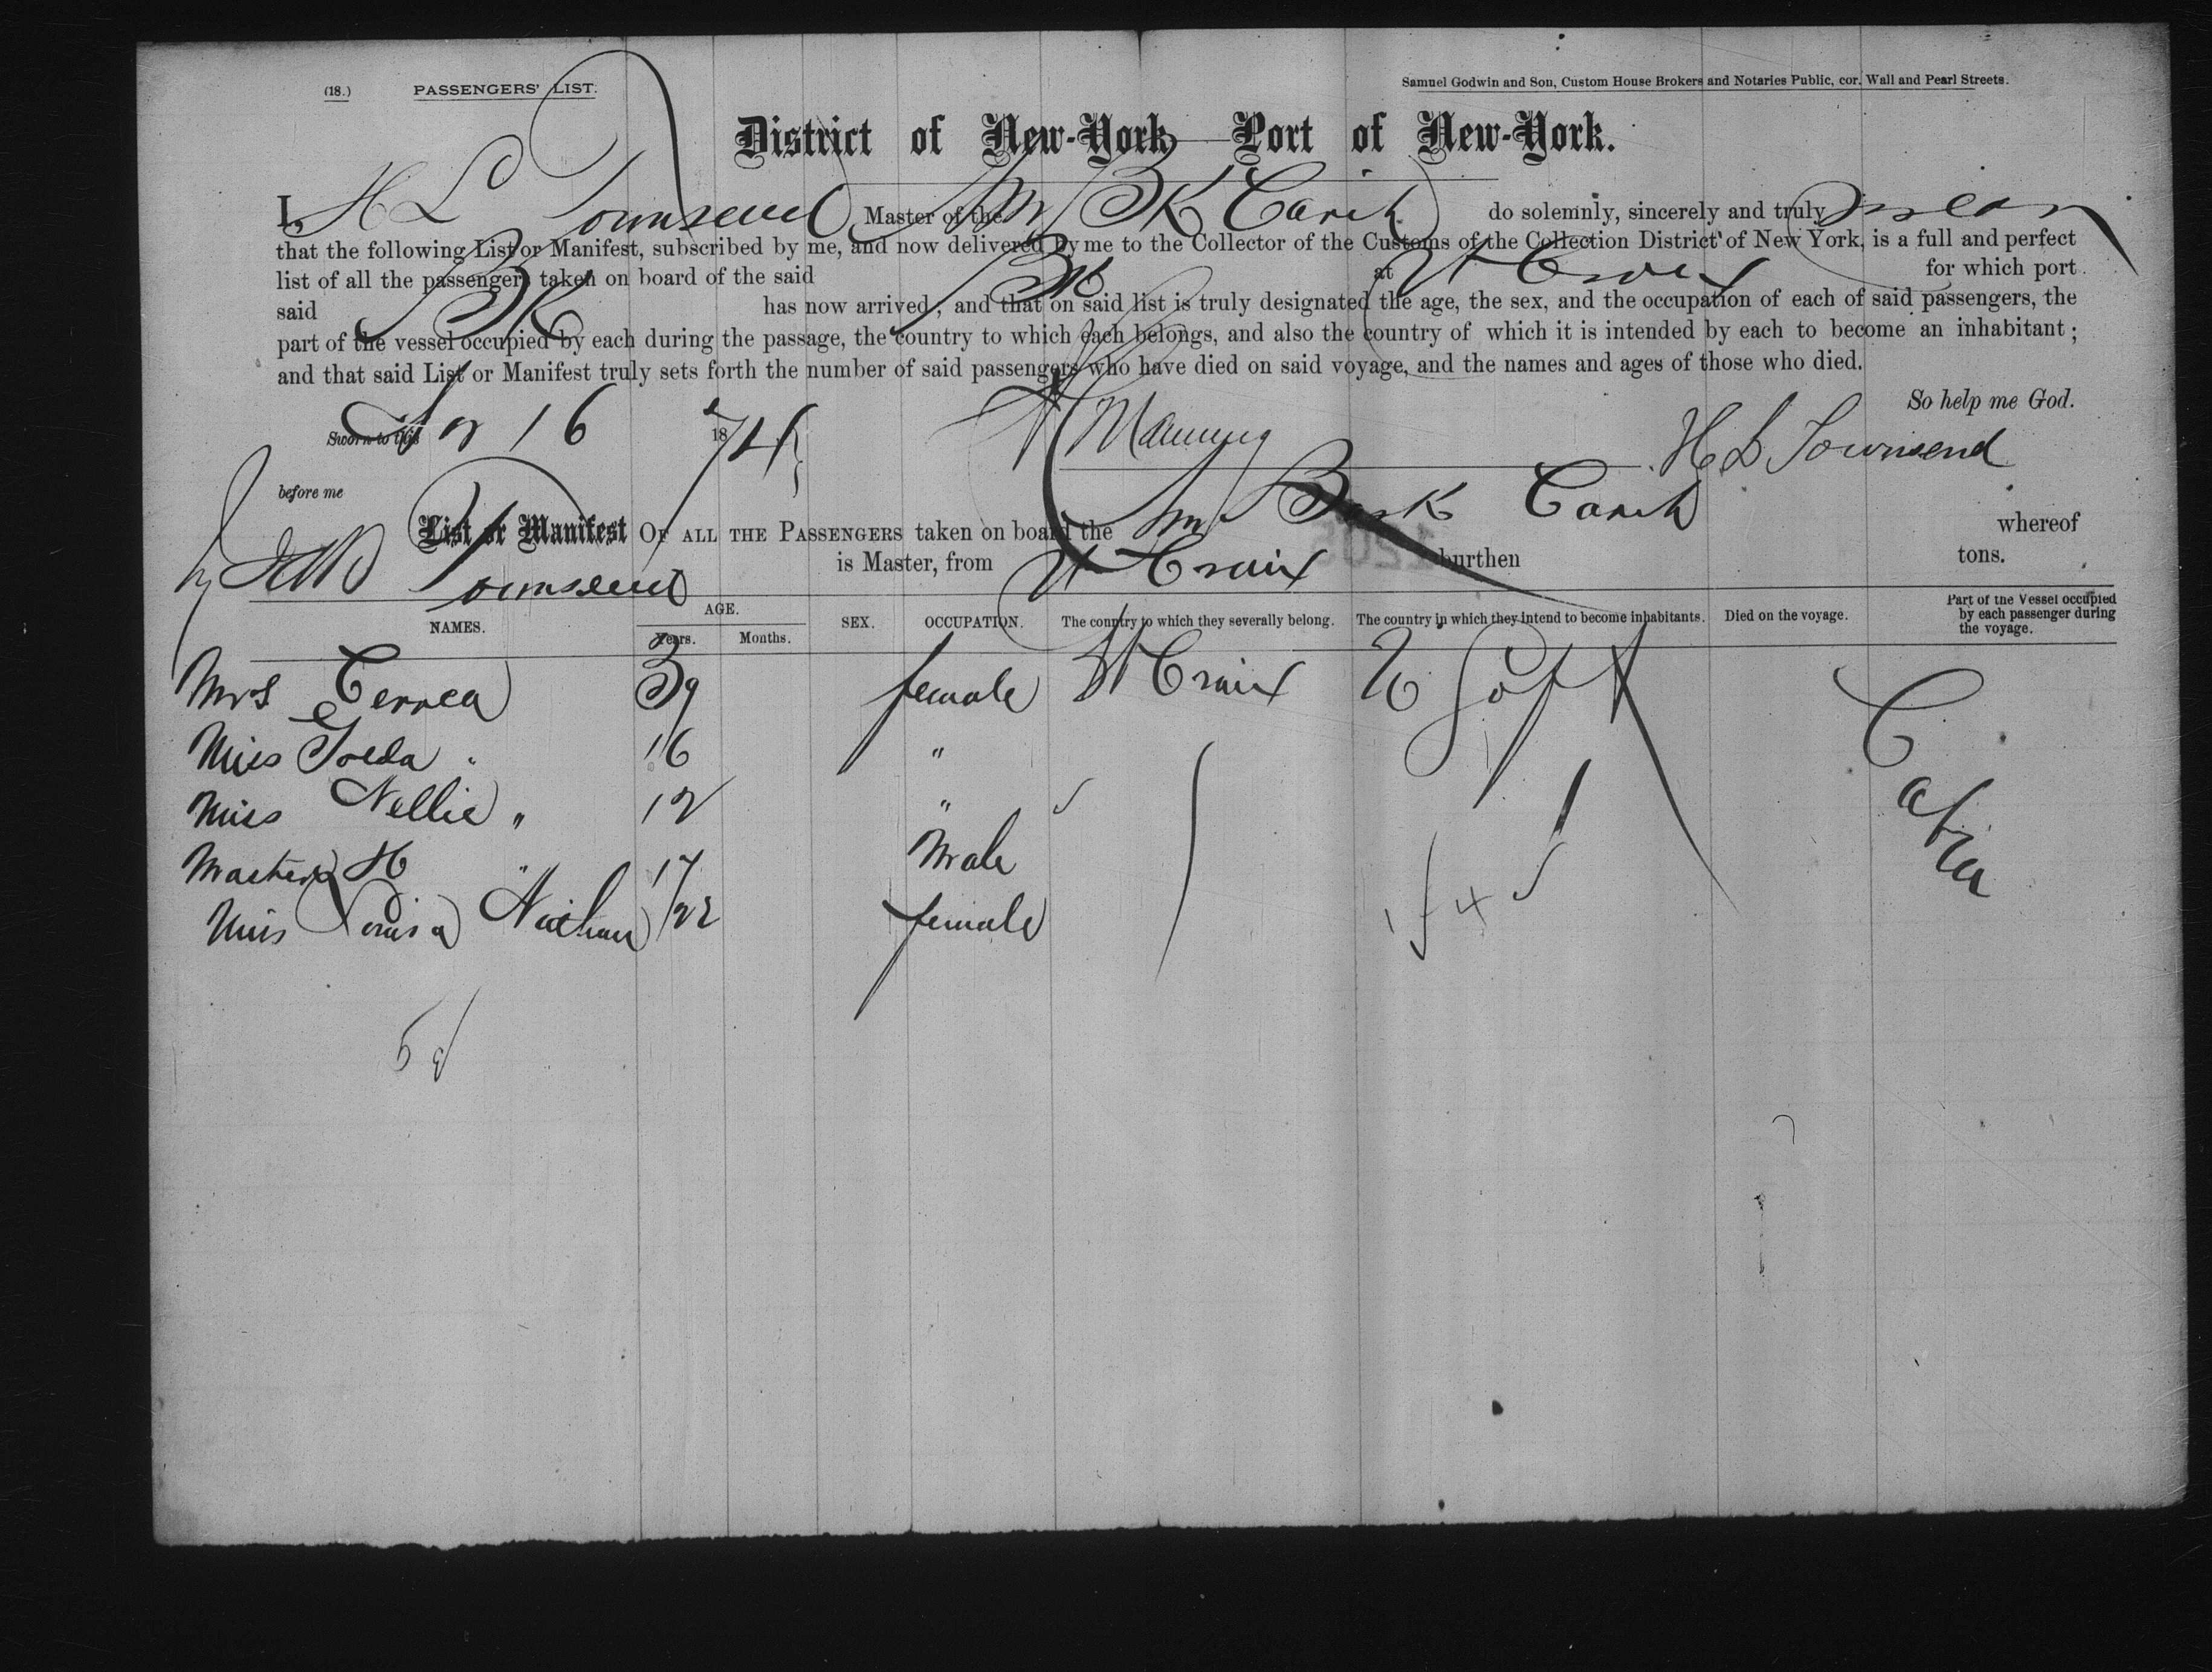 (18.) PASSENGERS' LIST.
Samuel Godwin and Son, Custom House Brokers and Notaries Public, cor. Wall and Pearl Streets.
District of New-York—Port of New-York.
I, H L Townsend Master of the Am BK Carib do solemnly, sincerely and truly swear
that the following List or Manifest, subscribed by me, and now delivered by me to the Collector of the Customs of the Collection District of New York, is a full and perfect
list of all the passengers taken on board of the said BK at St Croix for which port
said BK has now arrived; and that on said list is truly designated the age, the sex, and the occupation of each of said passengers, the
part of the vessel occupied by each during the passage, the country to which each belongs, and also the country of which it is intended by each to become an inhabitant;
and that said List or Manifest truly sets forth the number of said passengers who have died on said voyage, and the names and ages of those who died.
So help me God.
Sworn to this 16 1874
Manning
H L Townsend
before me
List or Manifest OF ALL THE PASSENGERS taken on board the Am Bark Carib whereof
Townsend is Master, from St Croix burthen tons.
NAMES. AGE. Years. Months. SEX. OCCUPATION. The country to which they severally belong. The country in which they intend to become inhabitants. Died on the voyage. Part of the Vessel occupied by each passenger during the voyage.
Mrs 39 female St Croix Cabin
Miss " 16 "
Miss Nellie " 12 "
Master H " 17 Male
Miss Louisa 22 female